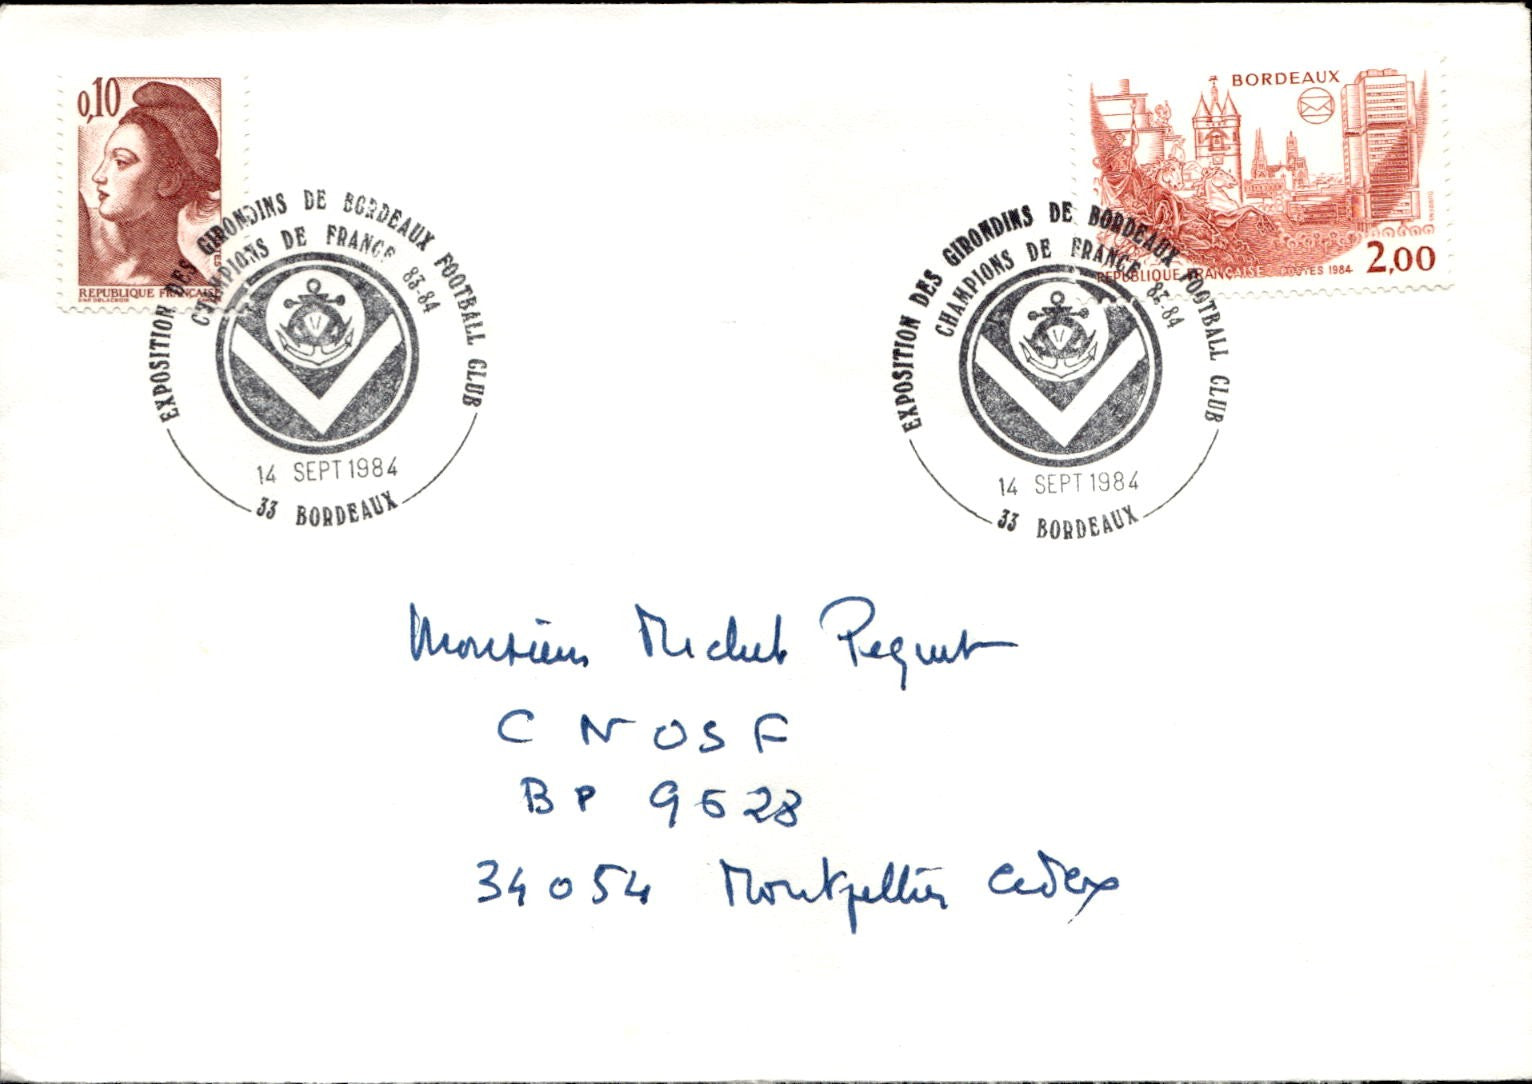 0,10
REPUBLIQUE FRANÇAISE
BORDEAUX
REPUBLIQUE FRANÇAISE POSTES 1984
2,00
EXPOSITION DES GIRONDINS DE BORDEAUX FOOTBALL CLUB
CHAMPIONS DE FRANCE 83-84
14 SEPT 1984
33 BORDEAUX
EXPOSITION DES GIRONDINS DE BORDEAUX FOOTBALL CLUB
CHAMPIONS DE FRANCE 83-84
14 SEPT 1984
33 BORDEAUX
Monsieur Michel Pequet
C N O S F
BP 9628
34054 Montpellier Cedex